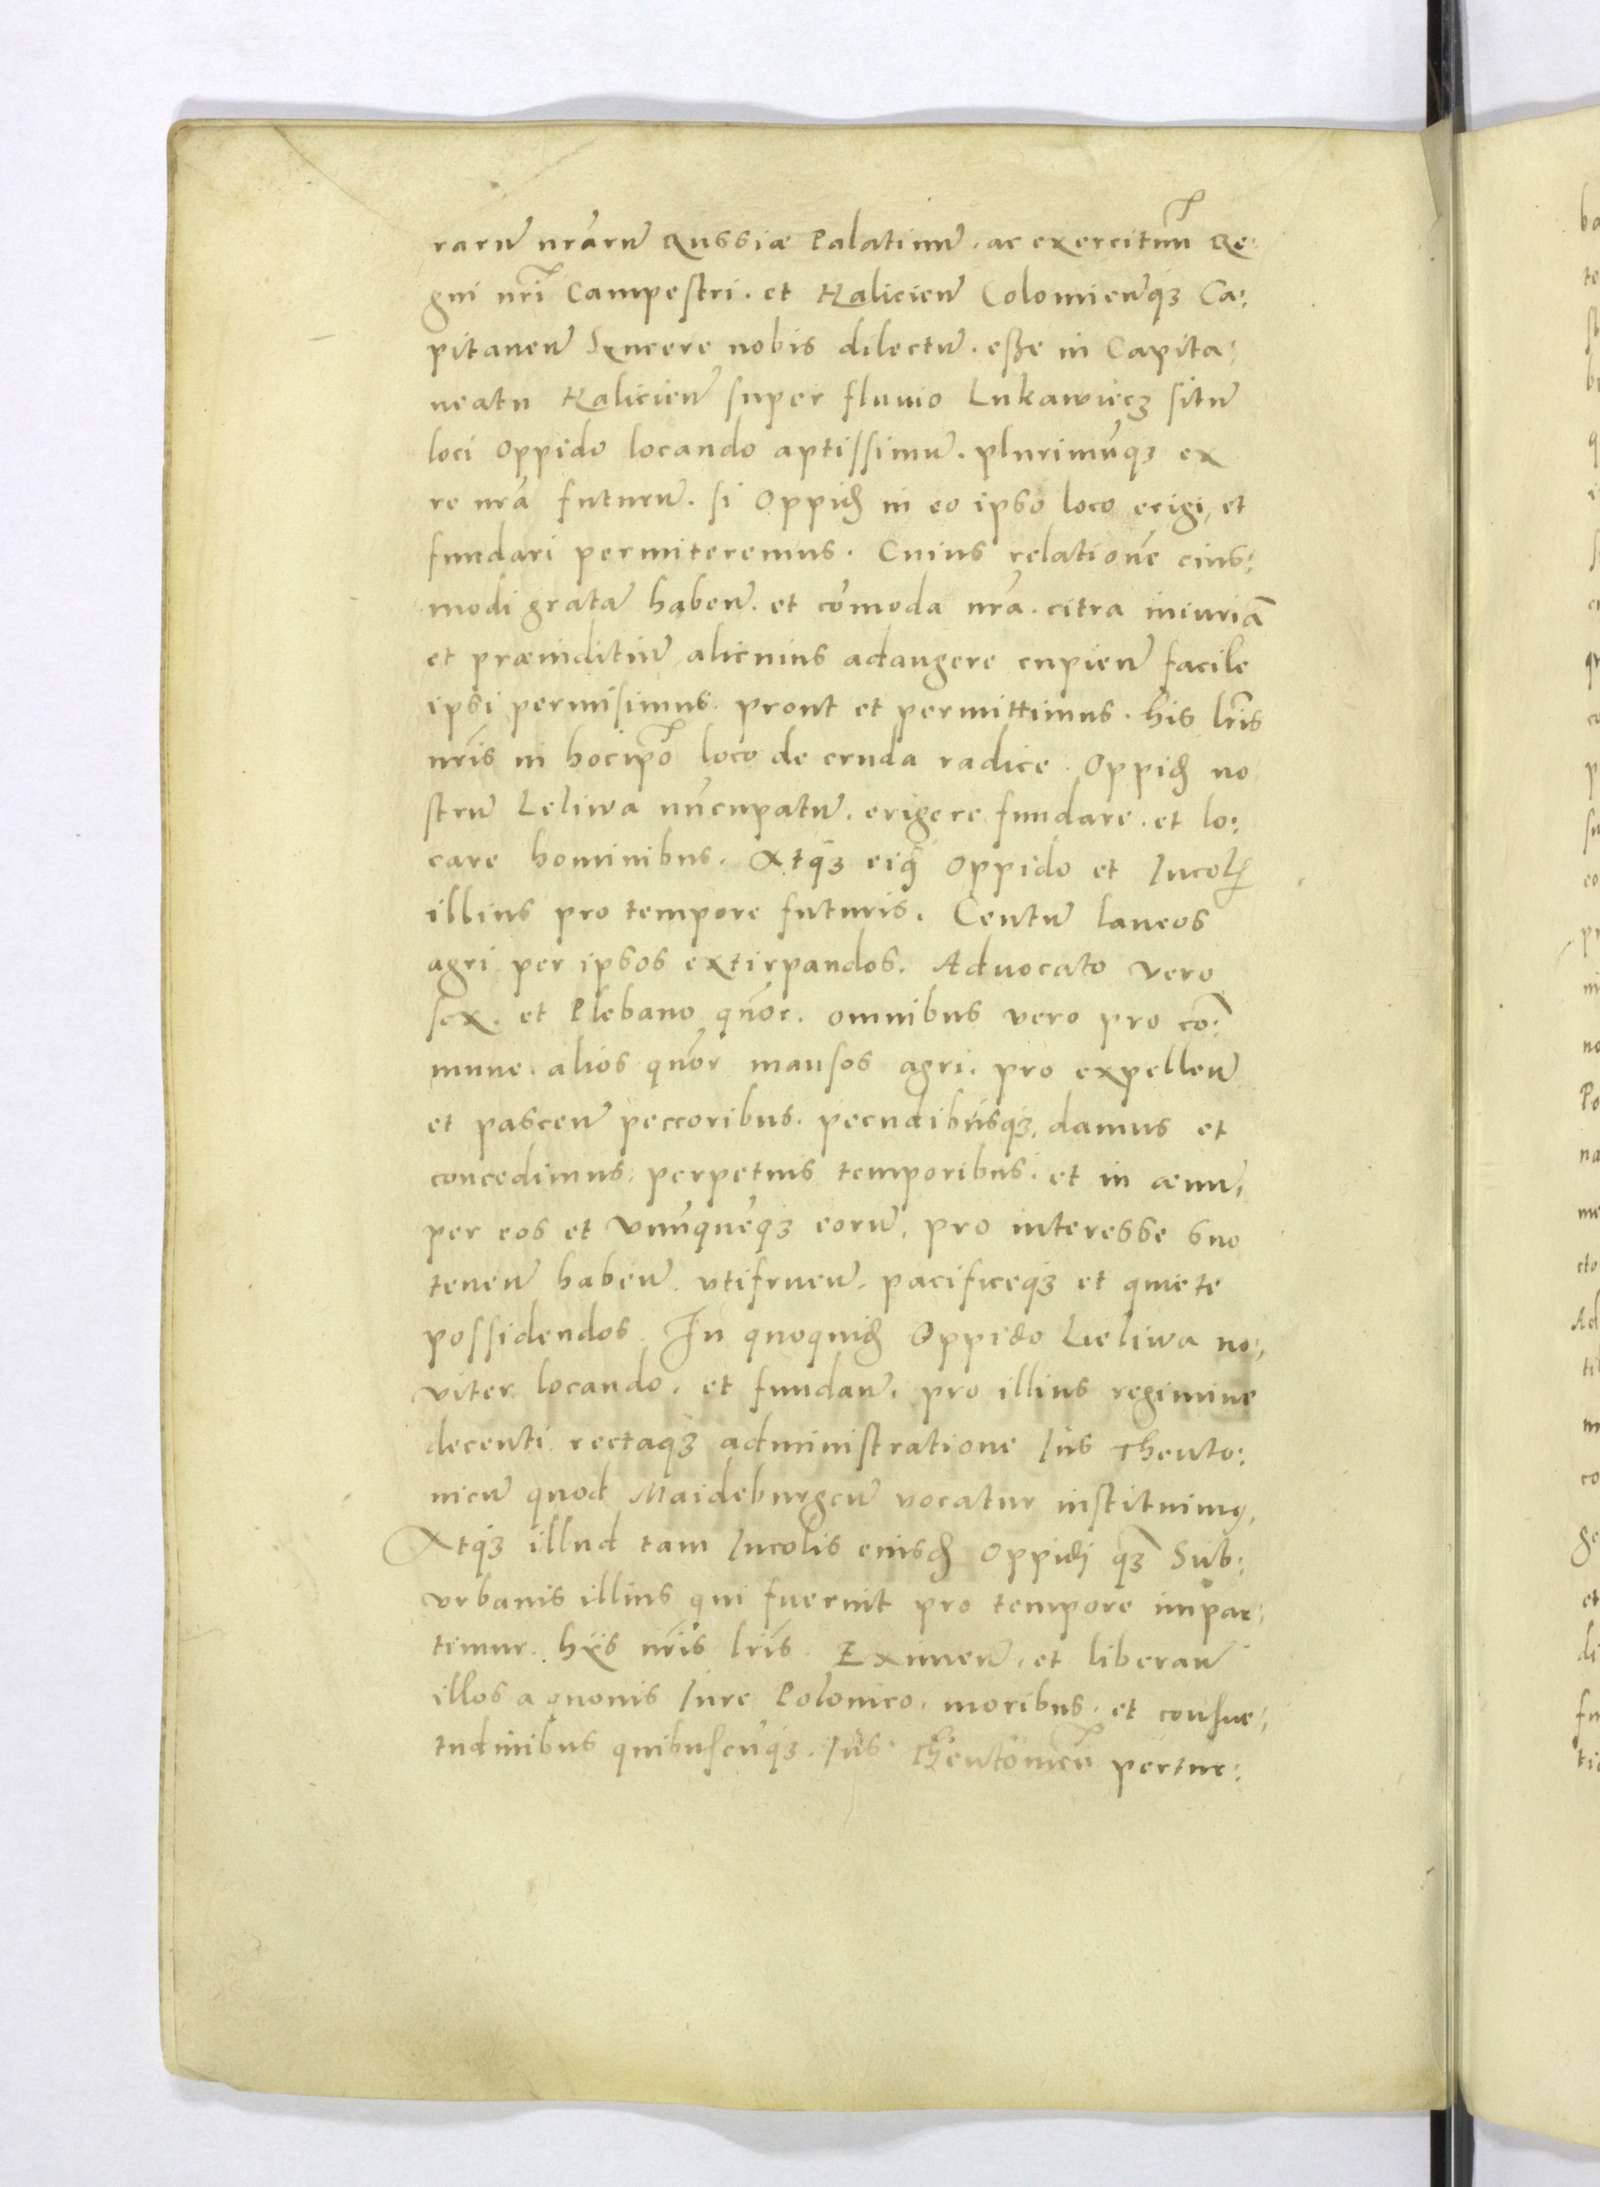 rarū nrārū Russiæ Palatinū. ac exercituū Re:
gni nrī Campestri. et Halicien̄ Colomien̄qꝫ Ca:
pitaneū Syncere nobis dilectū. esse in Capita:
neatu Halicien̄ super fluuio Lukawiecz sitū
loci Oppido locando aptissimū. plurimūqꝫ ex
re nrā futurū. si Oppid̄ in eo ipso loco erigi, et
fundari permiteremus. Cuius relationē eius:
modi gratā haben̄. et cōmoda nrā. citra iniuriā
et præiuditiū alicuius adaugere cupien̄ facile
ipsi permisimus. prout et permittimus. his lrīs
nrīs in hocipō loco de cruda radice. Oppid̄ no
strū Leliwa nūcupatū. erigere fundare. et lo:
care hominibus. Atqꝫ eiqꝫ Oppido et Incol̄
illius pro tempore futuris. Centū laneos
agri per ipsos extirpandos. Aduocato vero
sex. et Plebano qūor. omnibus vero pro cō:
mune. alios qūor mansos agri. pro expellen̄
et pascen̄ peccoribus. pecudibúsqꝫ, damus et
concedimus. perpetuis temporibus. et in æuū,
per eos et vnūquēqꝫ eorū, pro interesse suo
tenen̄ haben̄. vtifruen̄. pacificeqꝫ et quiete
possidendos. In quoquid̄ Oppido Leliwa no:
viter locando. et fundan̄. pro illius regimine
decenti rectaqꝫ administratione Iús Theuto:
nicū quod Maideburgēn̄ vocatur instituimꝯ,
Atqꝫ illud tam Incolis eiusd̄ Oppidi qꝫ̄ Sub:
vrbanis illius qui fuerint pro tempore impar:
timur. hijs nrīs lrīs. Eximen̄, et liberan̄
illos a quouis Iure Polonico. moribus. et consue:
tudinibus quibuscūqꝫ. Iús Theutonicū pertur: